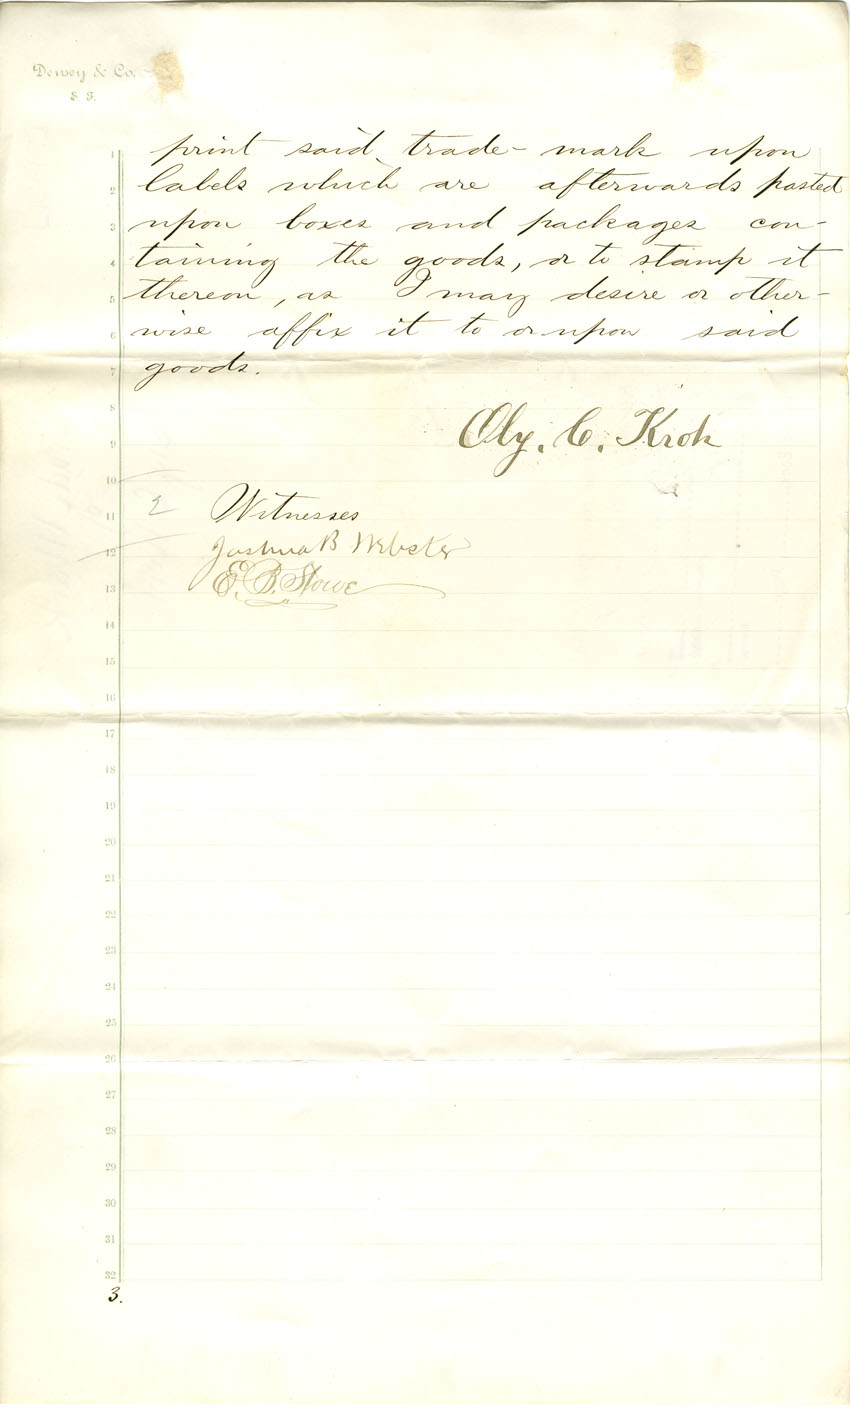 Dewey & Co.
S. F.
1 print said trade-mark upon
2 labels which are afterwards pasted
3 upon boxes and packages con-
4 taining the goods, or to stamp it
5 thereon, as I may desire or other-
6 wise affix it to or upon said
7 goods.
8
9 Oly. C. Krok
10
11 Witnesses
12 Joshua B Webster
13 E. B. Stowe
14
15
16
17
18
19
20
21
22
23
24
25
26
27
28
29
30
31
32
3.